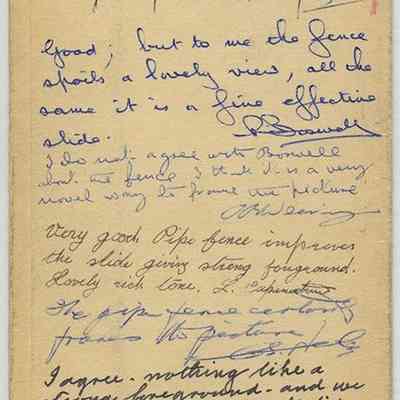 Good; but to me the fence
spoils a lovely view, all the
same it is a fine effective
slide. Boswell
I do not agree with Boswell
about the fence I think it is a very
novel way to frame the picture
Very good Pipe fence improves
the slide giving strong forground.
Lovely rich tone. L.
The pipe fence certainly
frames the picture
I agree - nothing like a
foreground - and we